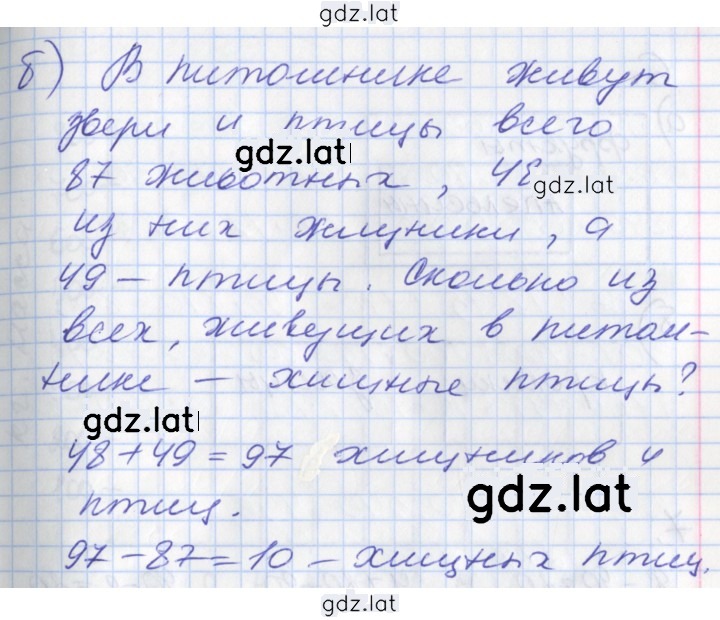 gdz.lat
б) В питомнике живут
звери и птицы всего
gdz.lat
87 животных, 48
gdz.lat
из них хищники, а
49 – птицы. Сколько из
всех, живущих в питом-
нике – хищные птицы?
gdz.lat
48 + 49 = 97 хищников и
gdz.lat
птиц.
97 – 87 = 10 – хищных птиц.
gdz.lat